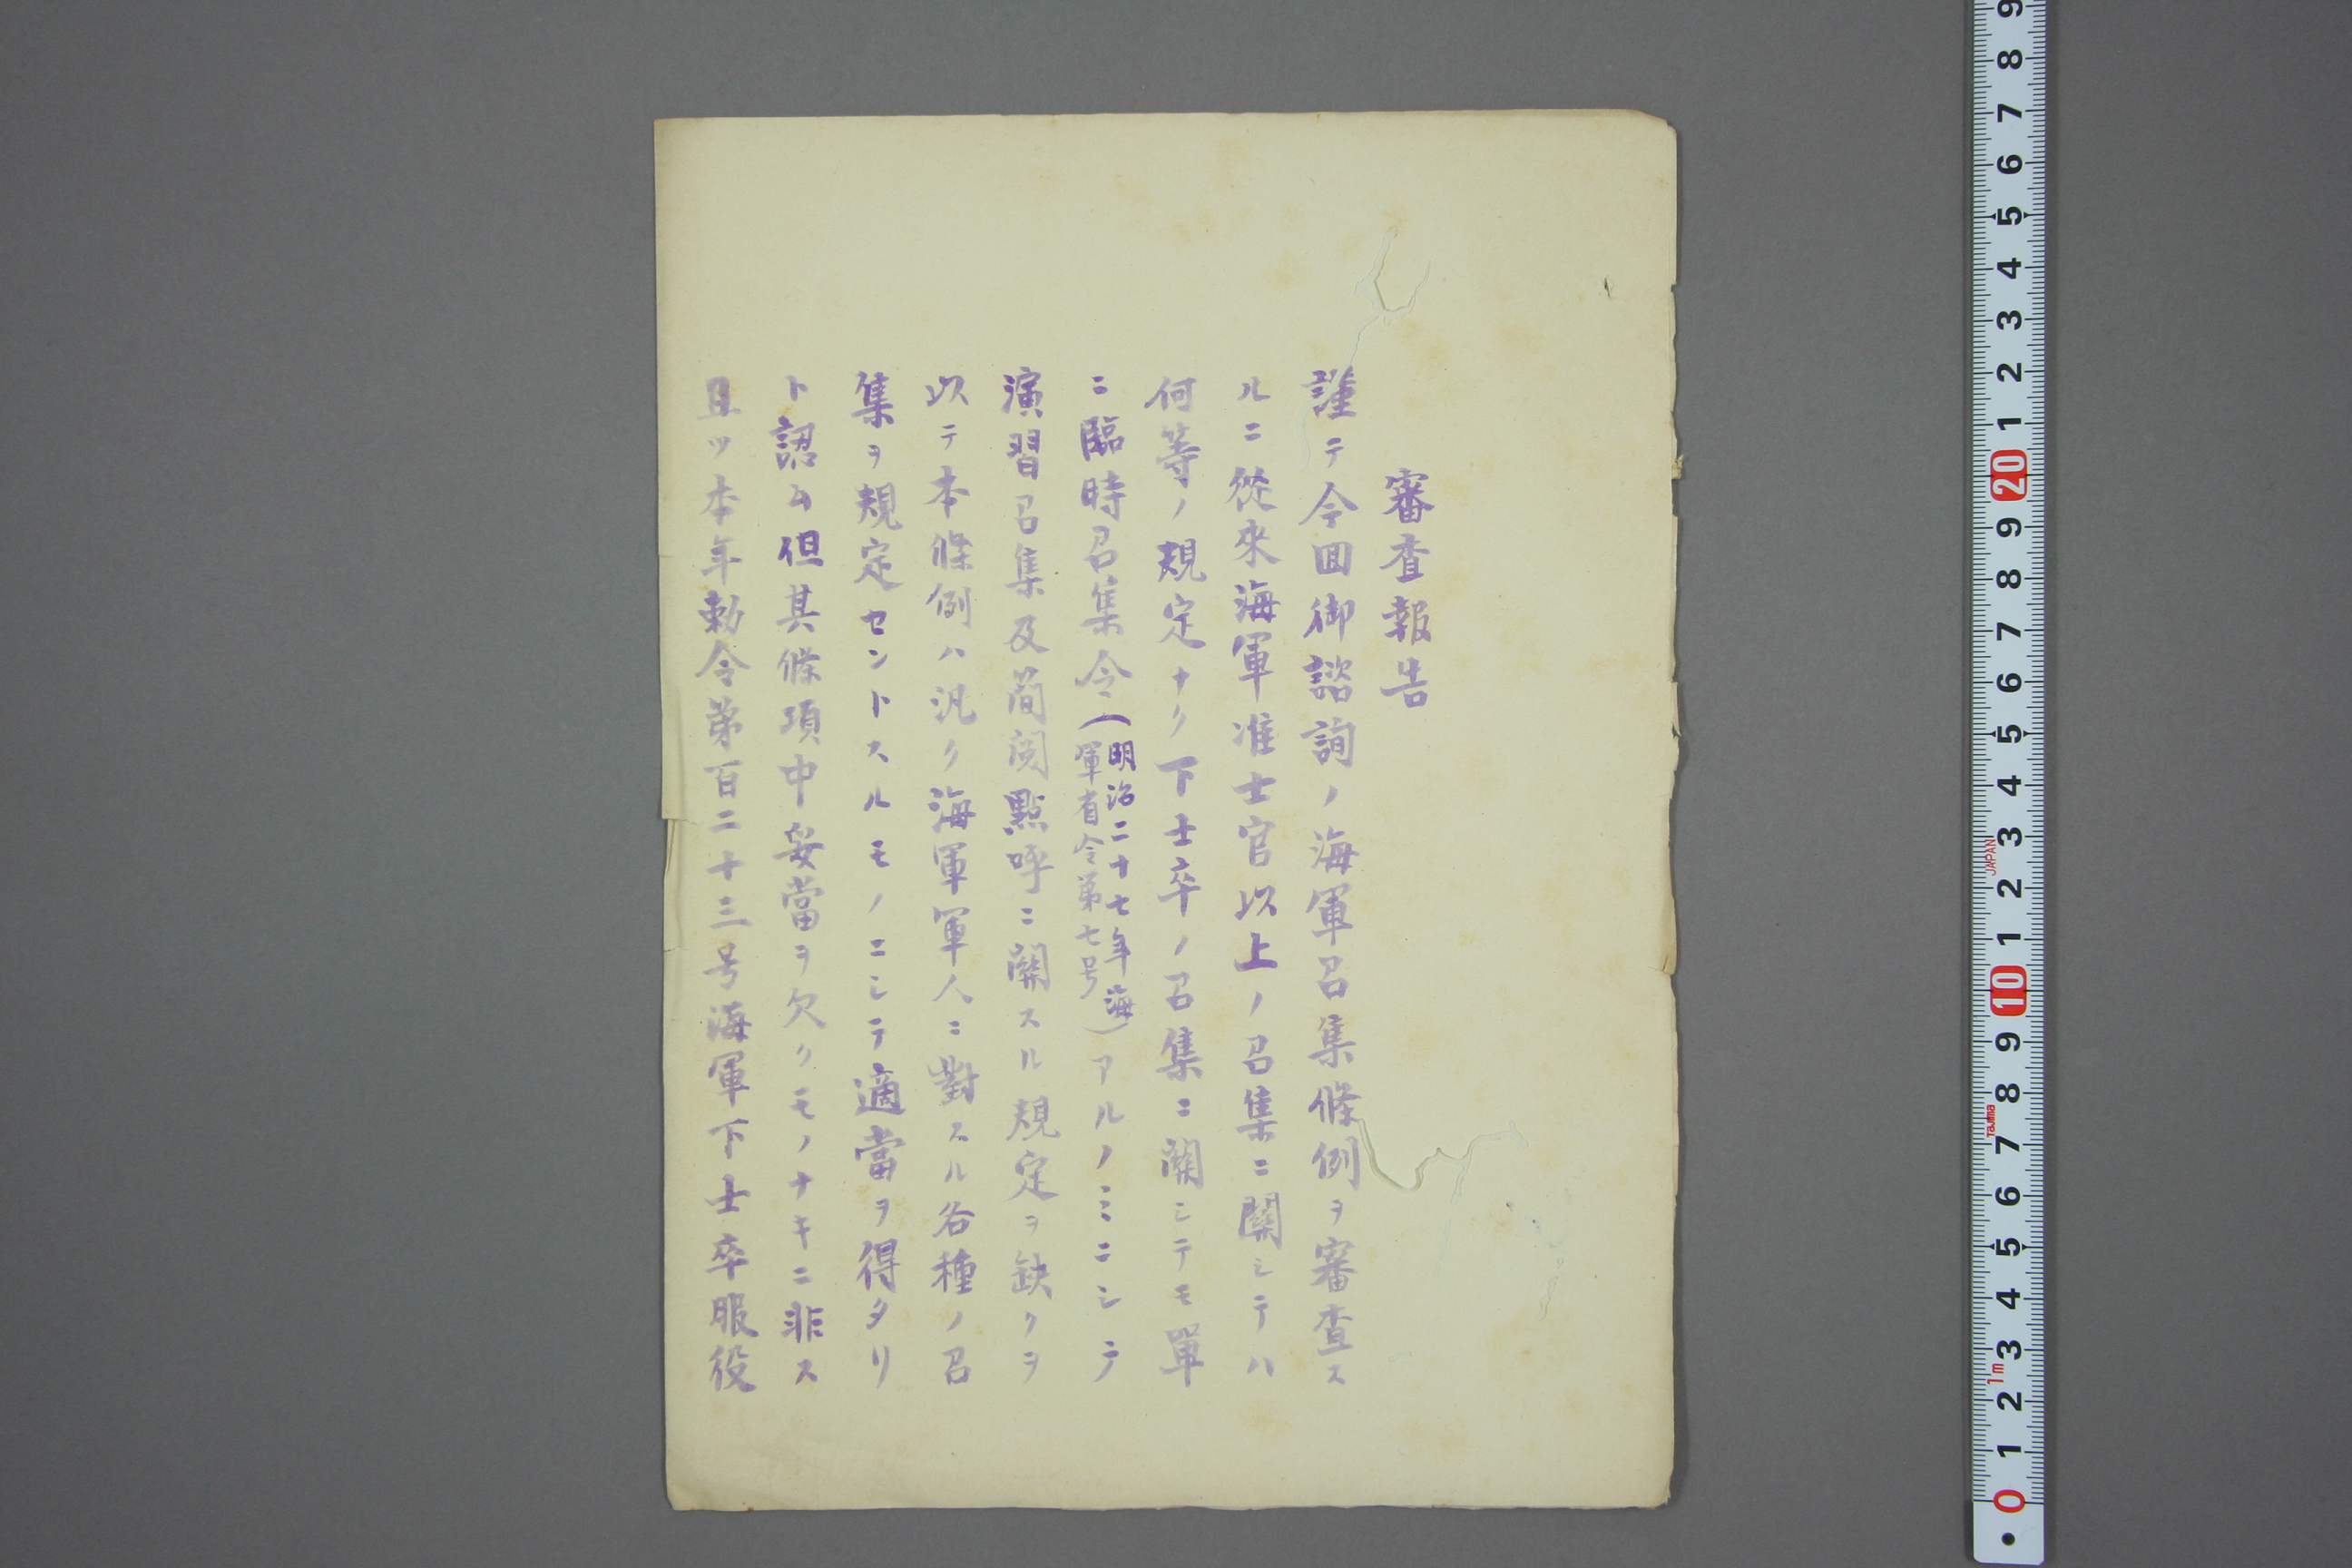 審査報告
謹テ今回御諮詢ノ海軍召集條例ヲ審査ス
ルニ從來海軍准士官以上ノ召集ニ關シテハ
何等ノ規定ナク下士卒ノ召集ニ關シテモ單
ニ臨時召集令(明治二十七年海軍省令第七号)アルノミニシテ
演習召集及簡閲點呼ニ關スル規定ヲ缺クヲ
以テ本條例ハ汎ク海軍軍人ニ對スル各種ノ召
集ヲ規定セントスルモノニシテ適當ヲ得タリ
ト認ム但其條項中妥當ヲ欠クモノナキニ非ス
且ツ本年勅令第百二十三号海軍下士卒服役
9
8
7
6
5
4
3
2
1
20
9
8
7
6
5
4
3
JAPAN
2
1
10
9
8
Tajima
7
6
5
4
3
1m
2
1
0